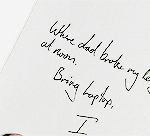 Where dad broke my leg
at noon.
Bring Laptop.
I